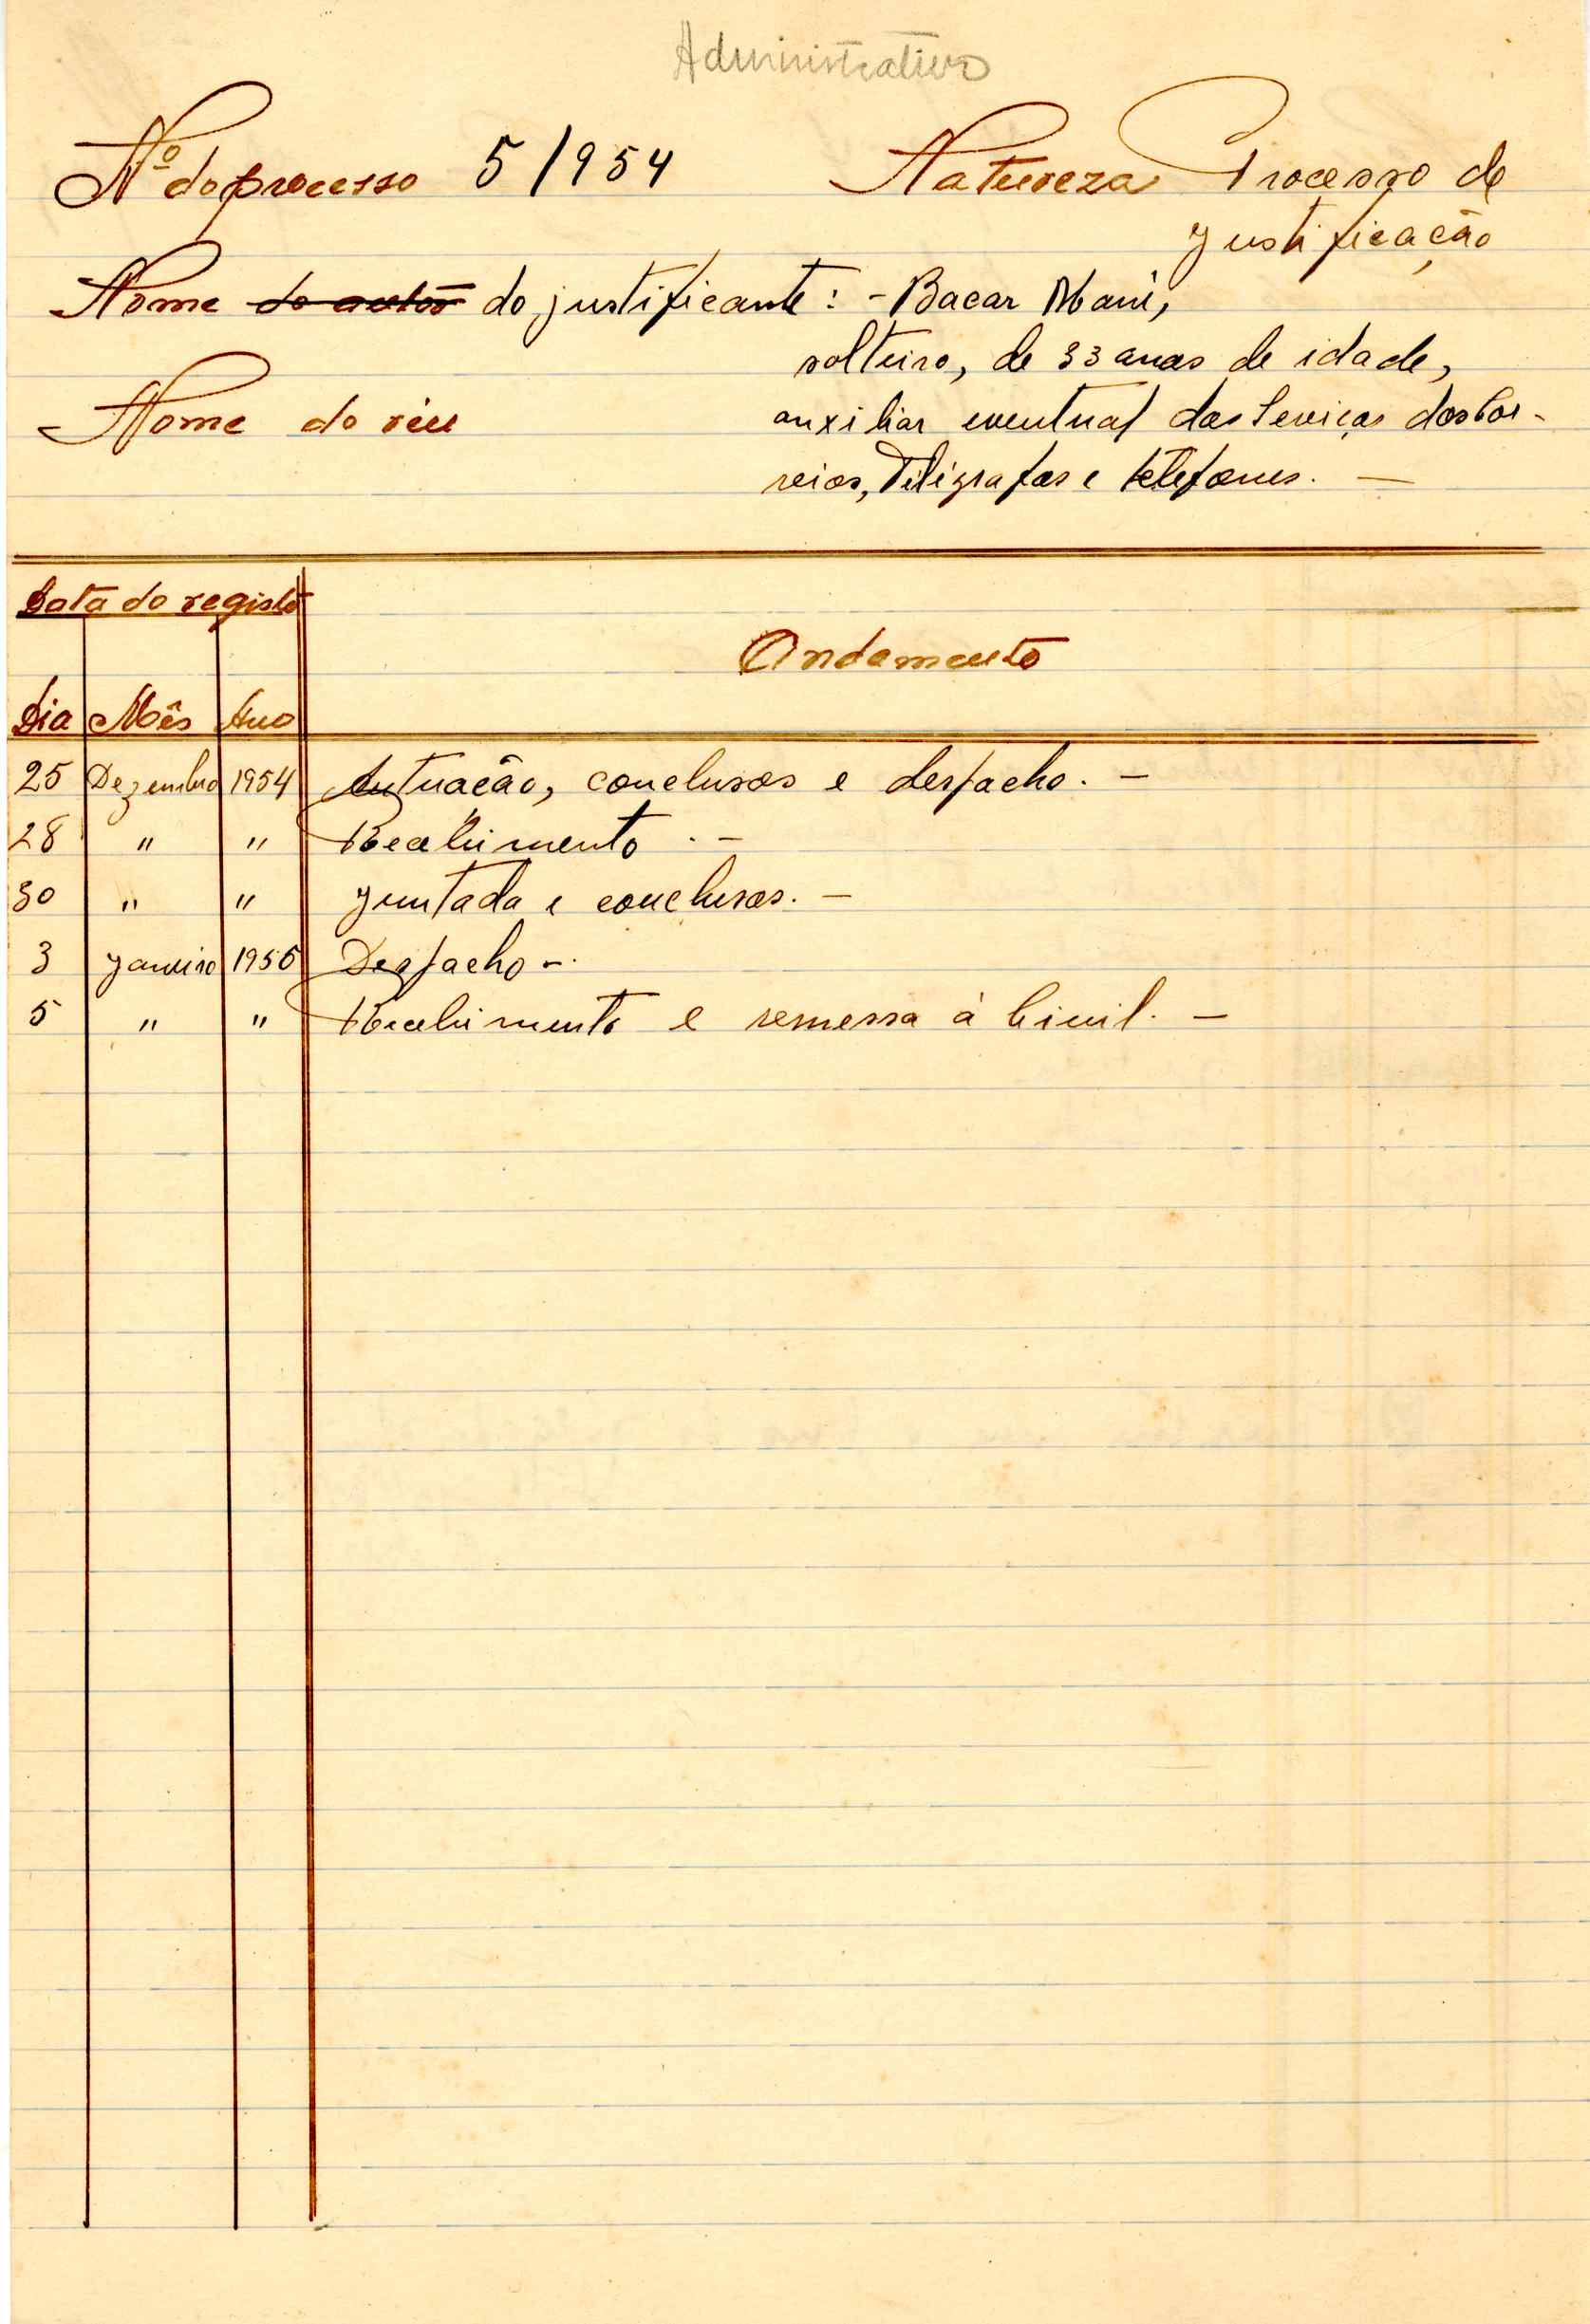 Administrativo
Nº do processo 5/1954 Natureza Processo de
Justificação
Nome do autor do justificante: - Bacar Mané,
solteiro, de 33 anos de idade,
Nome do réu
auxiliar eventual dos Serviços dos Cor-
reios, Telégrafos e telefones. —
Data do registo
Andamento
Dia Mês Ano
25 Dezembro 1954 Autuação, conclusos e despacho. —
28 " " Recebimento. —
30 " " Juntada e conclusos. —
3 Janeiro 1955 Despacho -.
5 " " Recebimento e remessa à Civil. —